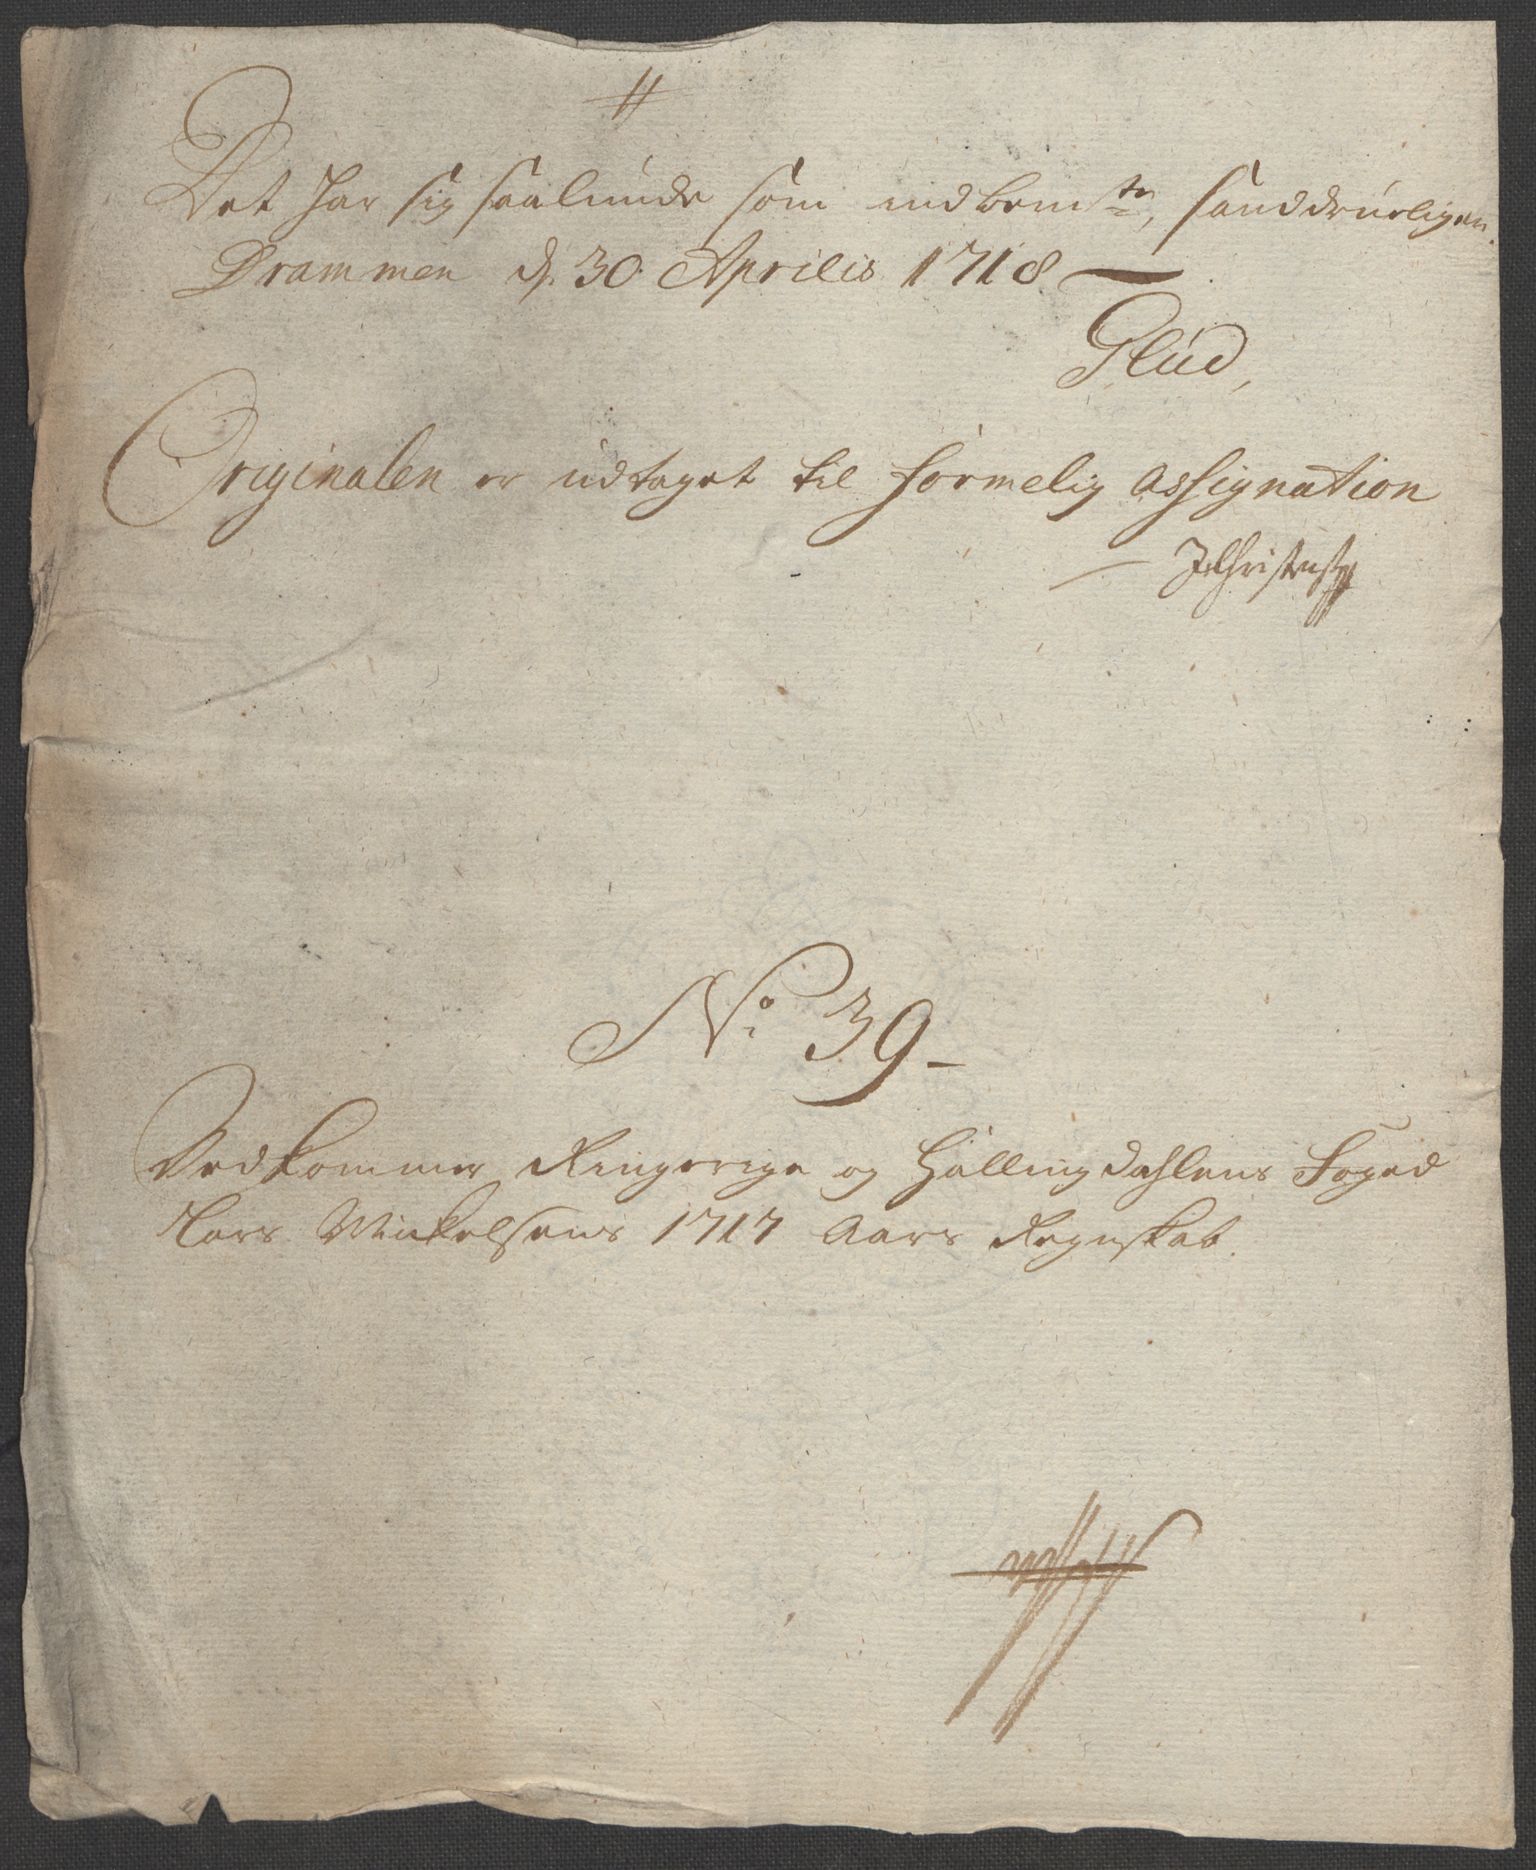 Det har sig saalunde som indbem:te, sanddruelligen.
Drammen d. 30 Aprilis 1718
Glud,
Originalen er udtaget til formelig assignation
JChristens
No 39
Vedkommer Ringerige og Hallingdahlens Foged
Lars Michelsens 1717 Aars Regnskab.